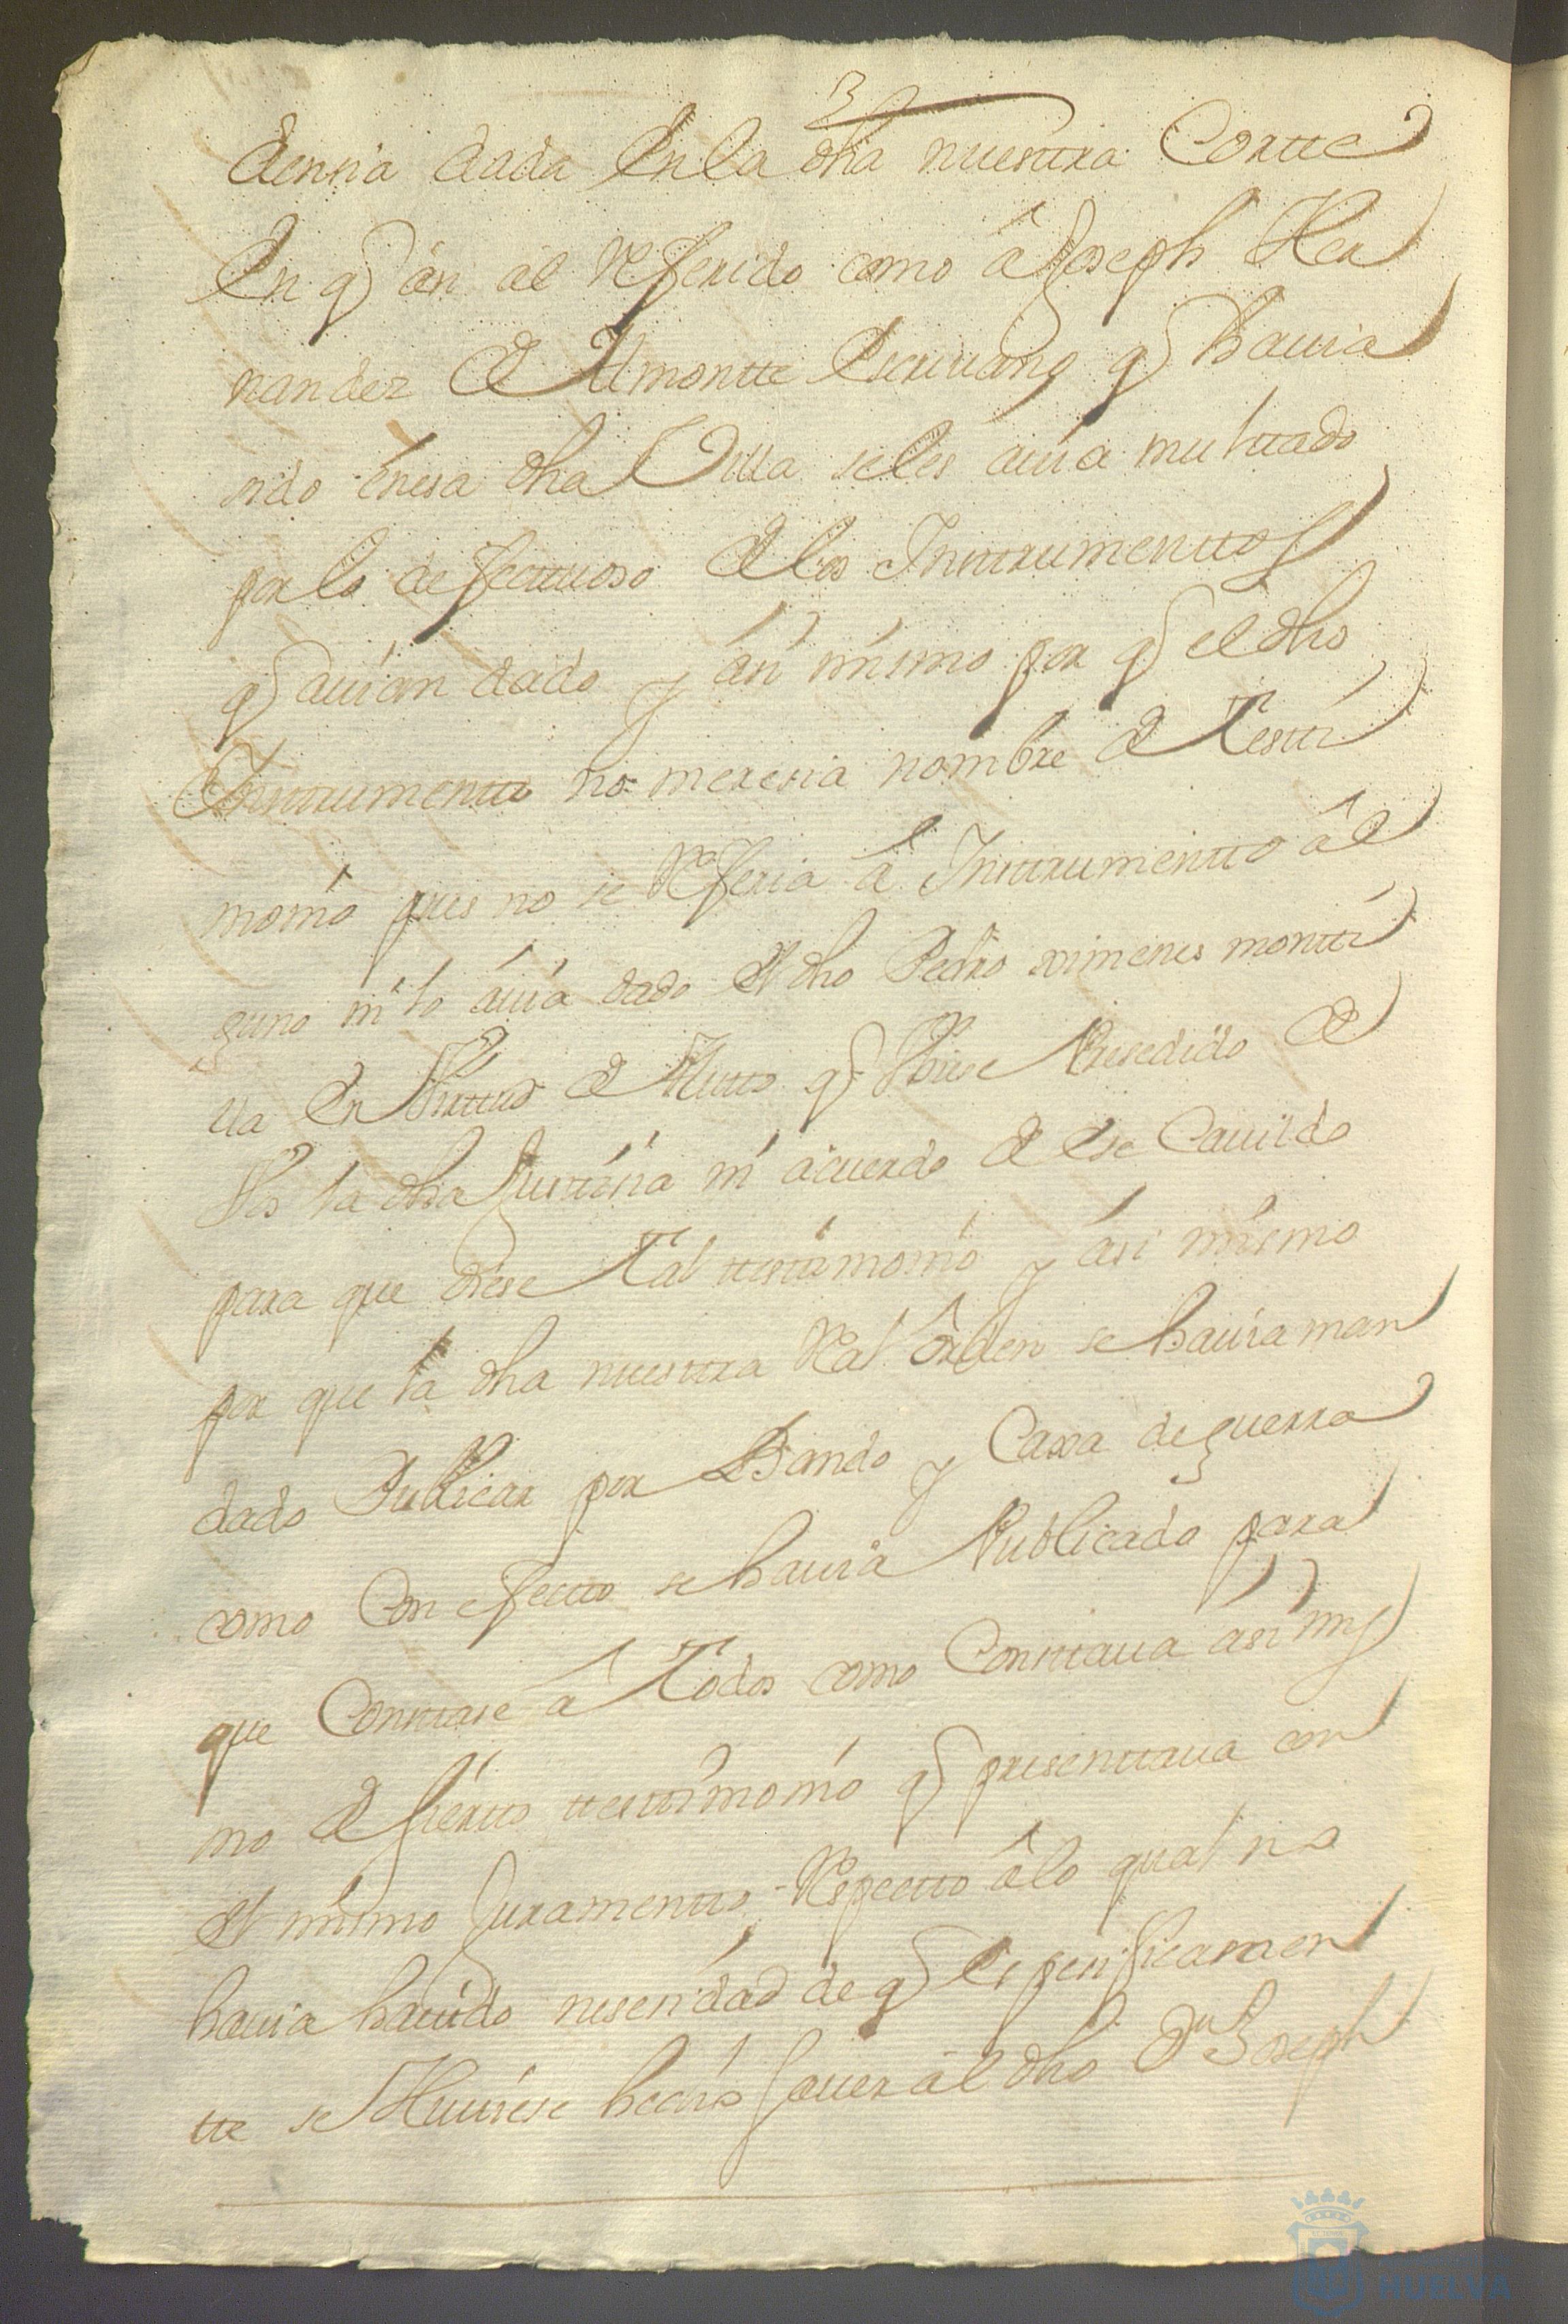 densia dada En la dha nuestra Cortte
En q asi al Referido como â Joseph Her
nandez de Almontte Escrivano q havia
sido en esa dha Villa se les avia multtado
por lo defecttuoso de los Instrumenttos
q avian dado y asi mismo por q el dho
Instrumento no meresia nombre de Testti
monio pues no se Referia â Instrumentto âl
guno ni lo avia dado El dho Pedro ximenes montti
lla En Virttud de Autto q Vbiese Presedido de
Vos la dha Justisia ni acuerdo de ese Cavildo
para que diese Tal testtimonio y asi mismo
por que la dha nuestra Real Orden se havia man
dado Publicar por Bando y Caxa de guerra
como Con efectto se havia Publicado para
que Constase â Todos como Consttava asi mis
mo de sierto testtimonio q presenttava con
El mismo Juramentto, Respectto âlo qual no
havia havido nesesidad de q Espesificamen
tte se Huviese hecho saver al dho Dn Joseph
HUELVA